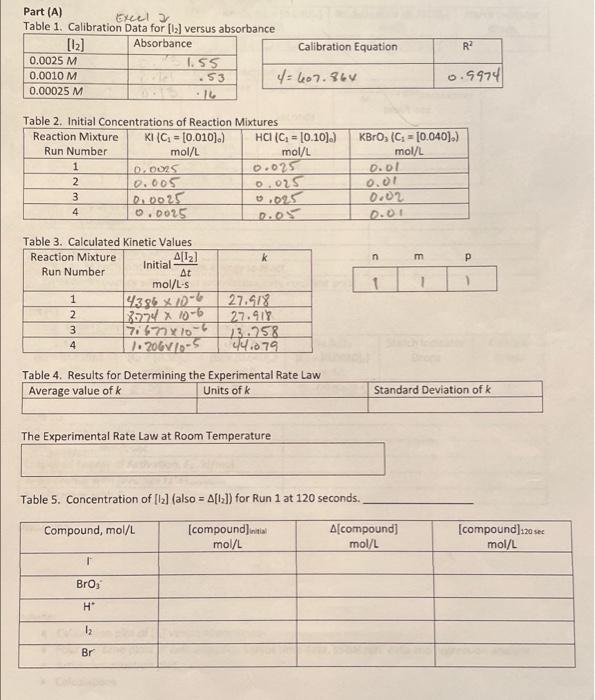 Part (A)
Excel 2
Table 1. Calibration Data for [I₂] versus absorbance
[I₂] Absorbance
0.0025 M 1.55
0.0010 M .53
0.00025 M .16
Calibration Equation R²
y= 607.86x 0.9974
Table 2. Initial Concentrations of Reaction Mixtures
Reaction Mixture Run Number KI (C₁ = [0.010]ₒ) mol/L HCl (C₁ = [0.10]ₒ) mol/L KBrO₃ (C₁ = [0.040]ₒ) mol/L
1 0.0025 0.025 0.01
2 0.005 0.025 0.01
3 0.0025 0.025 0.02
4 0.0025 0.05 0.01
Table 3. Calculated Kinetic Values
Reaction Mixture Run Number Initial Δ[I₂]/Δt mol/L·s k
1 4386 x 10⁻⁶ 27.918
2 8.774 x 10⁻⁶ 27.918
3 7.677 x 10⁻⁶ 13.758
4 1.206x10⁻⁵ 44.079
n m p
1 1 1
Table 4. Results for Determining the Experimental Rate Law
Average value of k Units of k Standard Deviation of k
The Experimental Rate Law at Room Temperature
Table 5. Concentration of [I₂] (also = Δ[I₂]) for Run 1 at 120 seconds.
Compound, mol/L [compound]initial mol/L Δ[compound] mol/L [compound]120 sec mol/L
I⁻
BrO₃⁻
H⁺
I₂
Br⁻